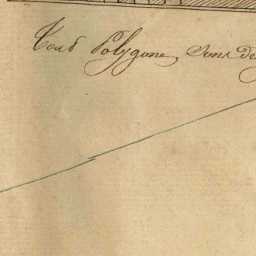 Tout Polygone, sous de